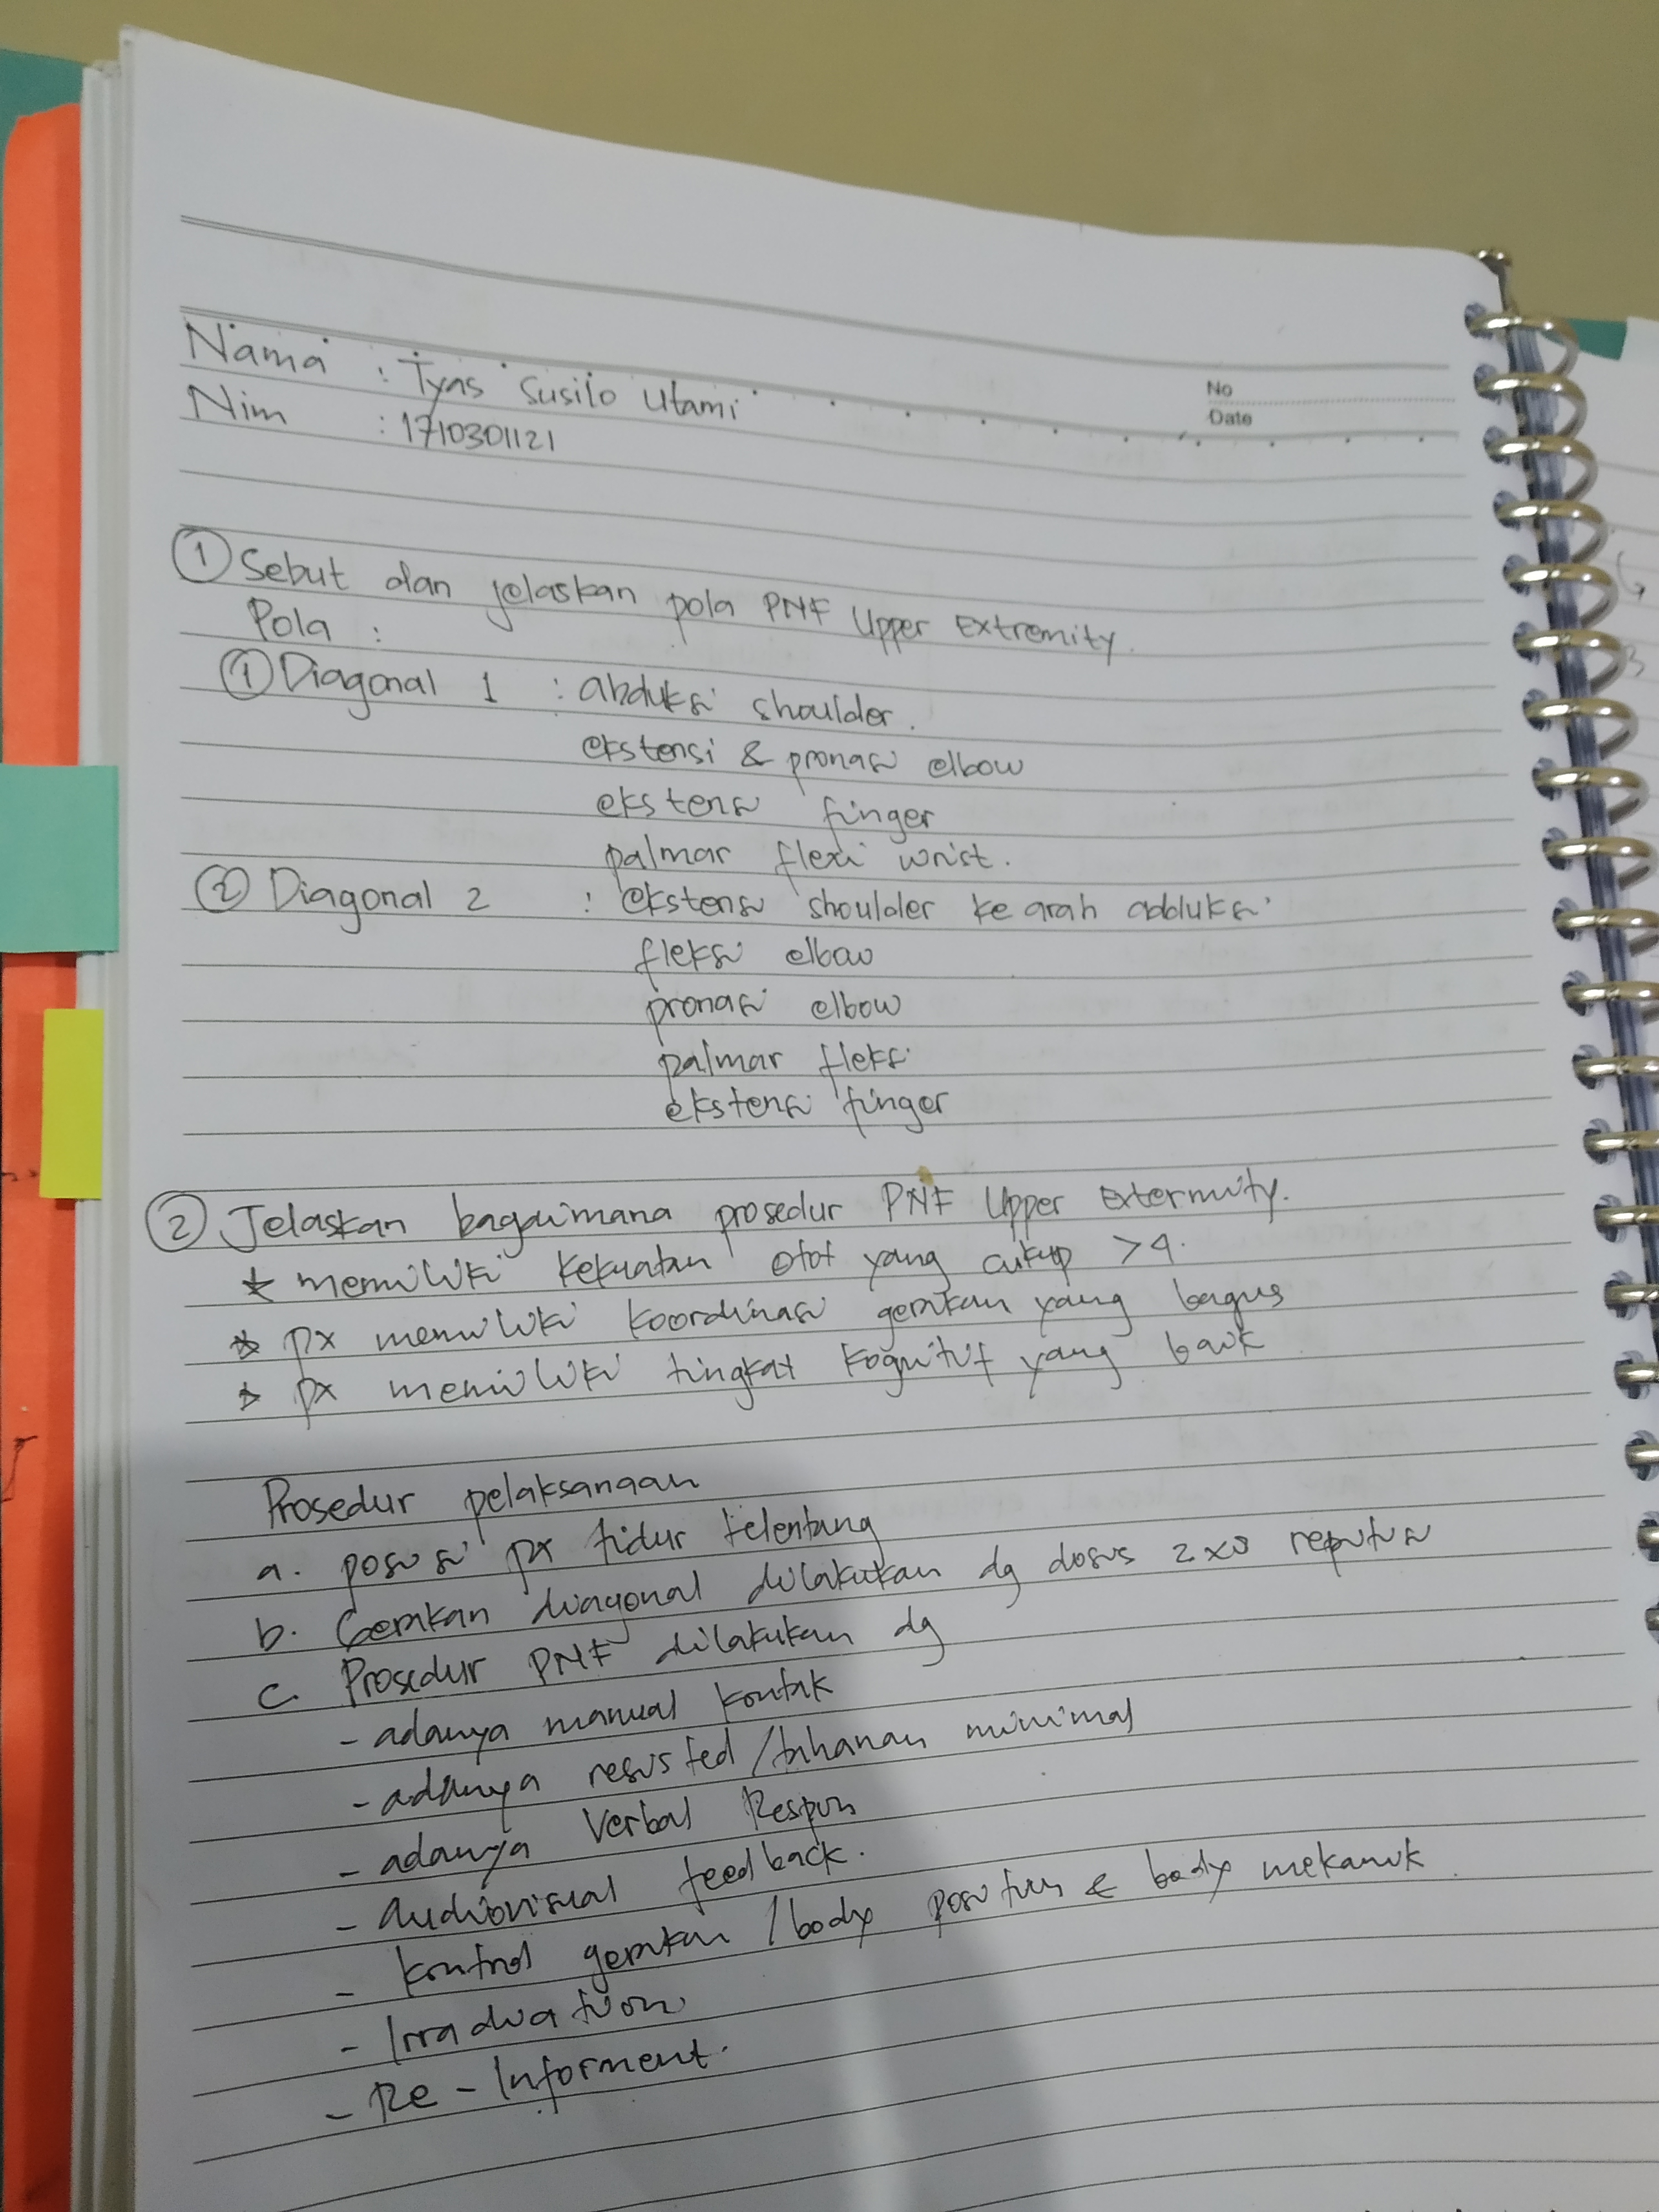 No
Date
Nama : Tyas Susilo Utami
Nim : 1710301121
① Sebut dan jelaskan pola PNF Upper Extremity.
Pola :
① Diagonal 1 : abduksi shoulder.
ekstensi & pronasi elbow
ekstensi finger
palmar flexi wrist.
② Diagonal 2 : ekstensi shoulder ke arah adduksi
fleksi elbow
pronasi elbow
palmar fleksi
ekstensi finger
② Jelaskan bagaimana prosedur PNF Upper Extermity.
* memiliki kekuatan otot yang cukup >4.
* px memiliki koordinasi gerakan yang bagus
* px memiliki tingkat kognitif yang baik
Prosedur pelaksanaan
a. posisi px tidur telentang
b. Gerakan diagonal dilakukan dg dosis 2x8 repetisi
c. Prosedur PNF dilakukan dg
- adanya manual kontak
- adanya resisted / tahanan minimal
- adanya Verbal Respon
- Audiovisual feedback.
- kontrol gerakan / body position & body mekanik.
- Irradiation
- Re-Informent.